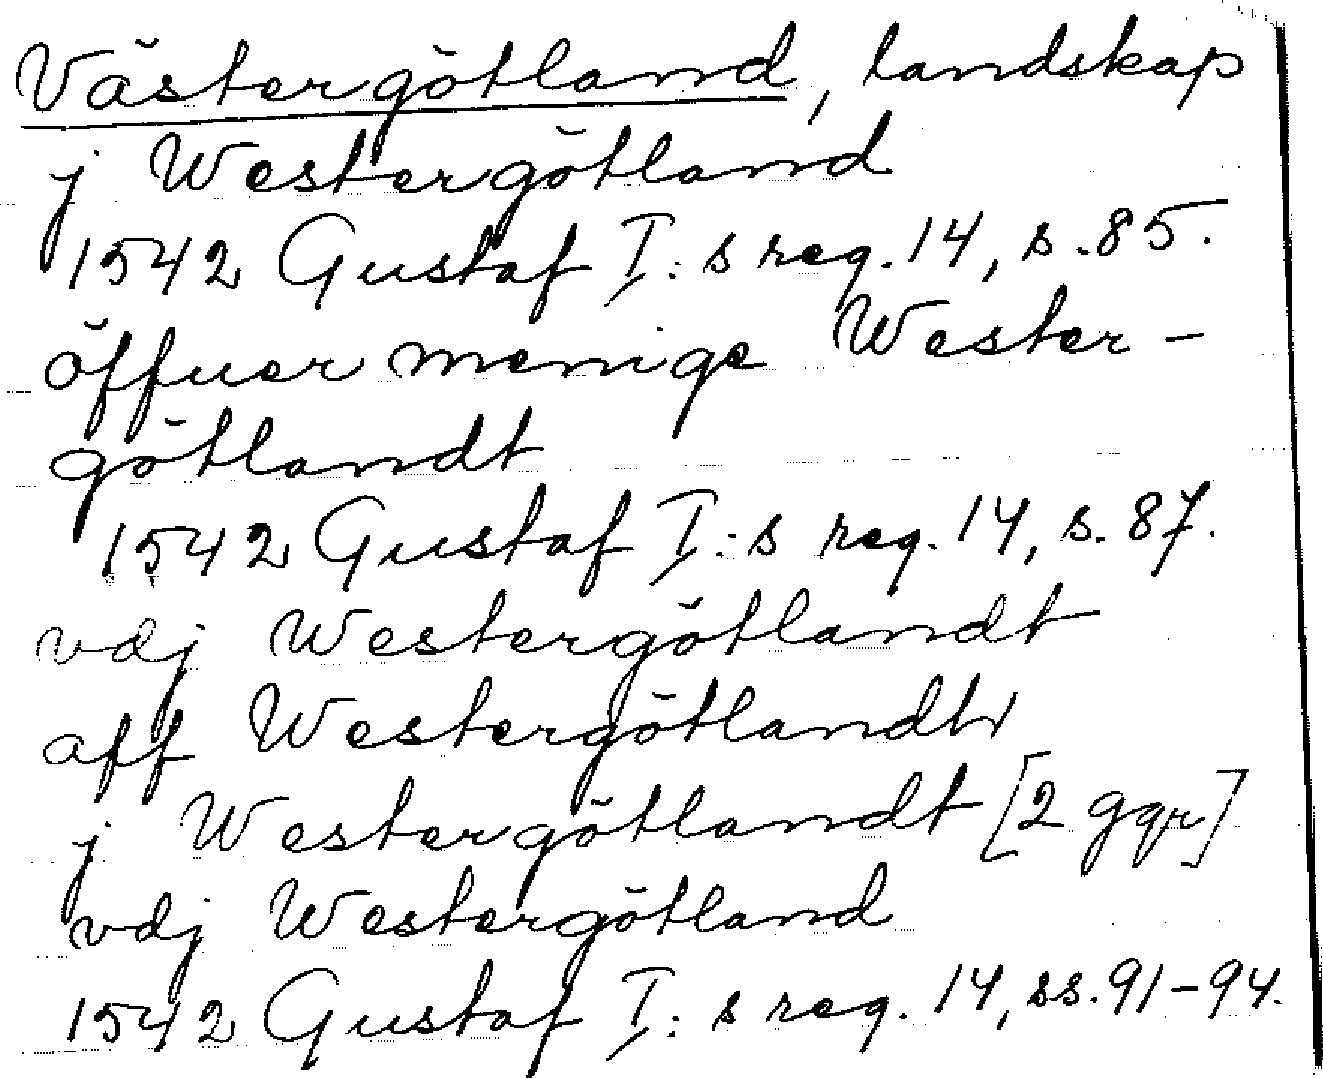 Västergötland, landskap
j Westergötland
1542 Gustaf I:s reg. 14, s. 85.
öffuer menige Wester-
götlandt
1542 Gustaf I:s reg. 14, s. 87.
vdj Westergötlandt
aff Westergötlandt
j Westergötlandt [2 ggr]
vdj Westergötland
1542 Gustaf I:s reg. 14, ss. 91-94.